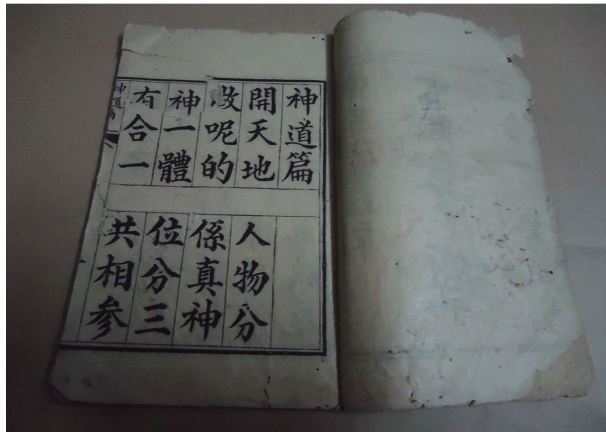 神道篇
開天地 人物分
呢的 係真神
神一體 位分三
有合一 共相参
神道